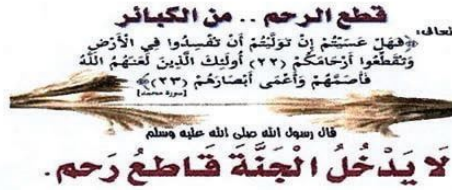 قطع الرحم .. من الكبائر
تعالى:
﴿فَهَلْ عَسَيْتُمْ إِنْ تَوَلَّيْتُمْ أَنْ تُفْسِدُوا فِي الْأَرْضِ
وَتُقَطِّعُوا أَرْحَامَكُمْ (٢٢) أُولَئِكَ الَّذِينَ لَعَنَهُمُ اللَّهُ
فَأَصَمَّهُمْ وَأَعْمَى أَبْصَارَهُمْ (٢٣)﴾ [سورة محمد]
قال رسول الله صلى الله عليه وسلم
لَا يَدْخُلُ الْجَنَّةَ قَاطِعُ رَحِم.